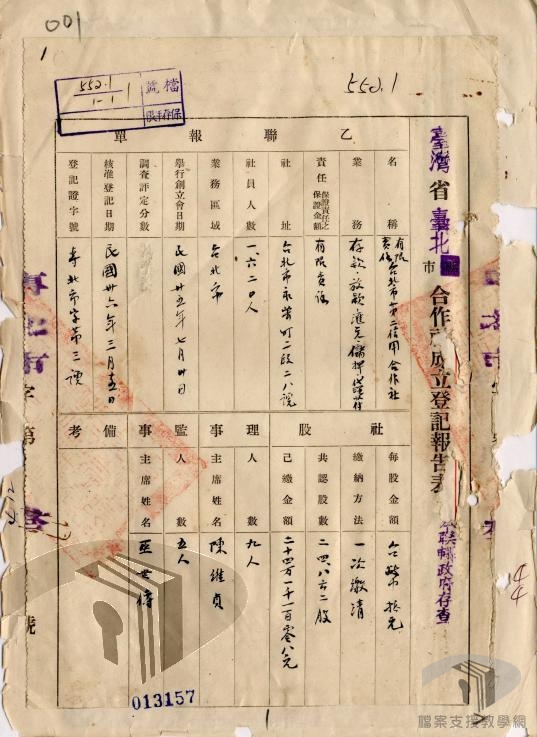 001
1
552.1
檔號
552.1
1-1
1
保存年限
臺灣省臺北市合作社成立登記報告表
本聯轉政府存查
乙聯報單
名稱
有限責任台北市第二信用合作社
業務
責任
保證責任之保證金額
有限責任
社址
台北市永樂町二段二八號
社員人數
一、六二〇人
業務區域
台北市
舉行創立會日期
民國卅五年七月廿日
調查評定分數
核准登記日期
民國卅六年三月五日
登記證字號
社股
每股金額
台幣拾元
繳納方法
一次繳清
共認股數
二四八六二股
已繳金額
理事
人數
九人
主席姓名
陳維貞
監事
人數
五人
主席姓名
備考
字第
號
4
4
013157
1
檔案支援教學網